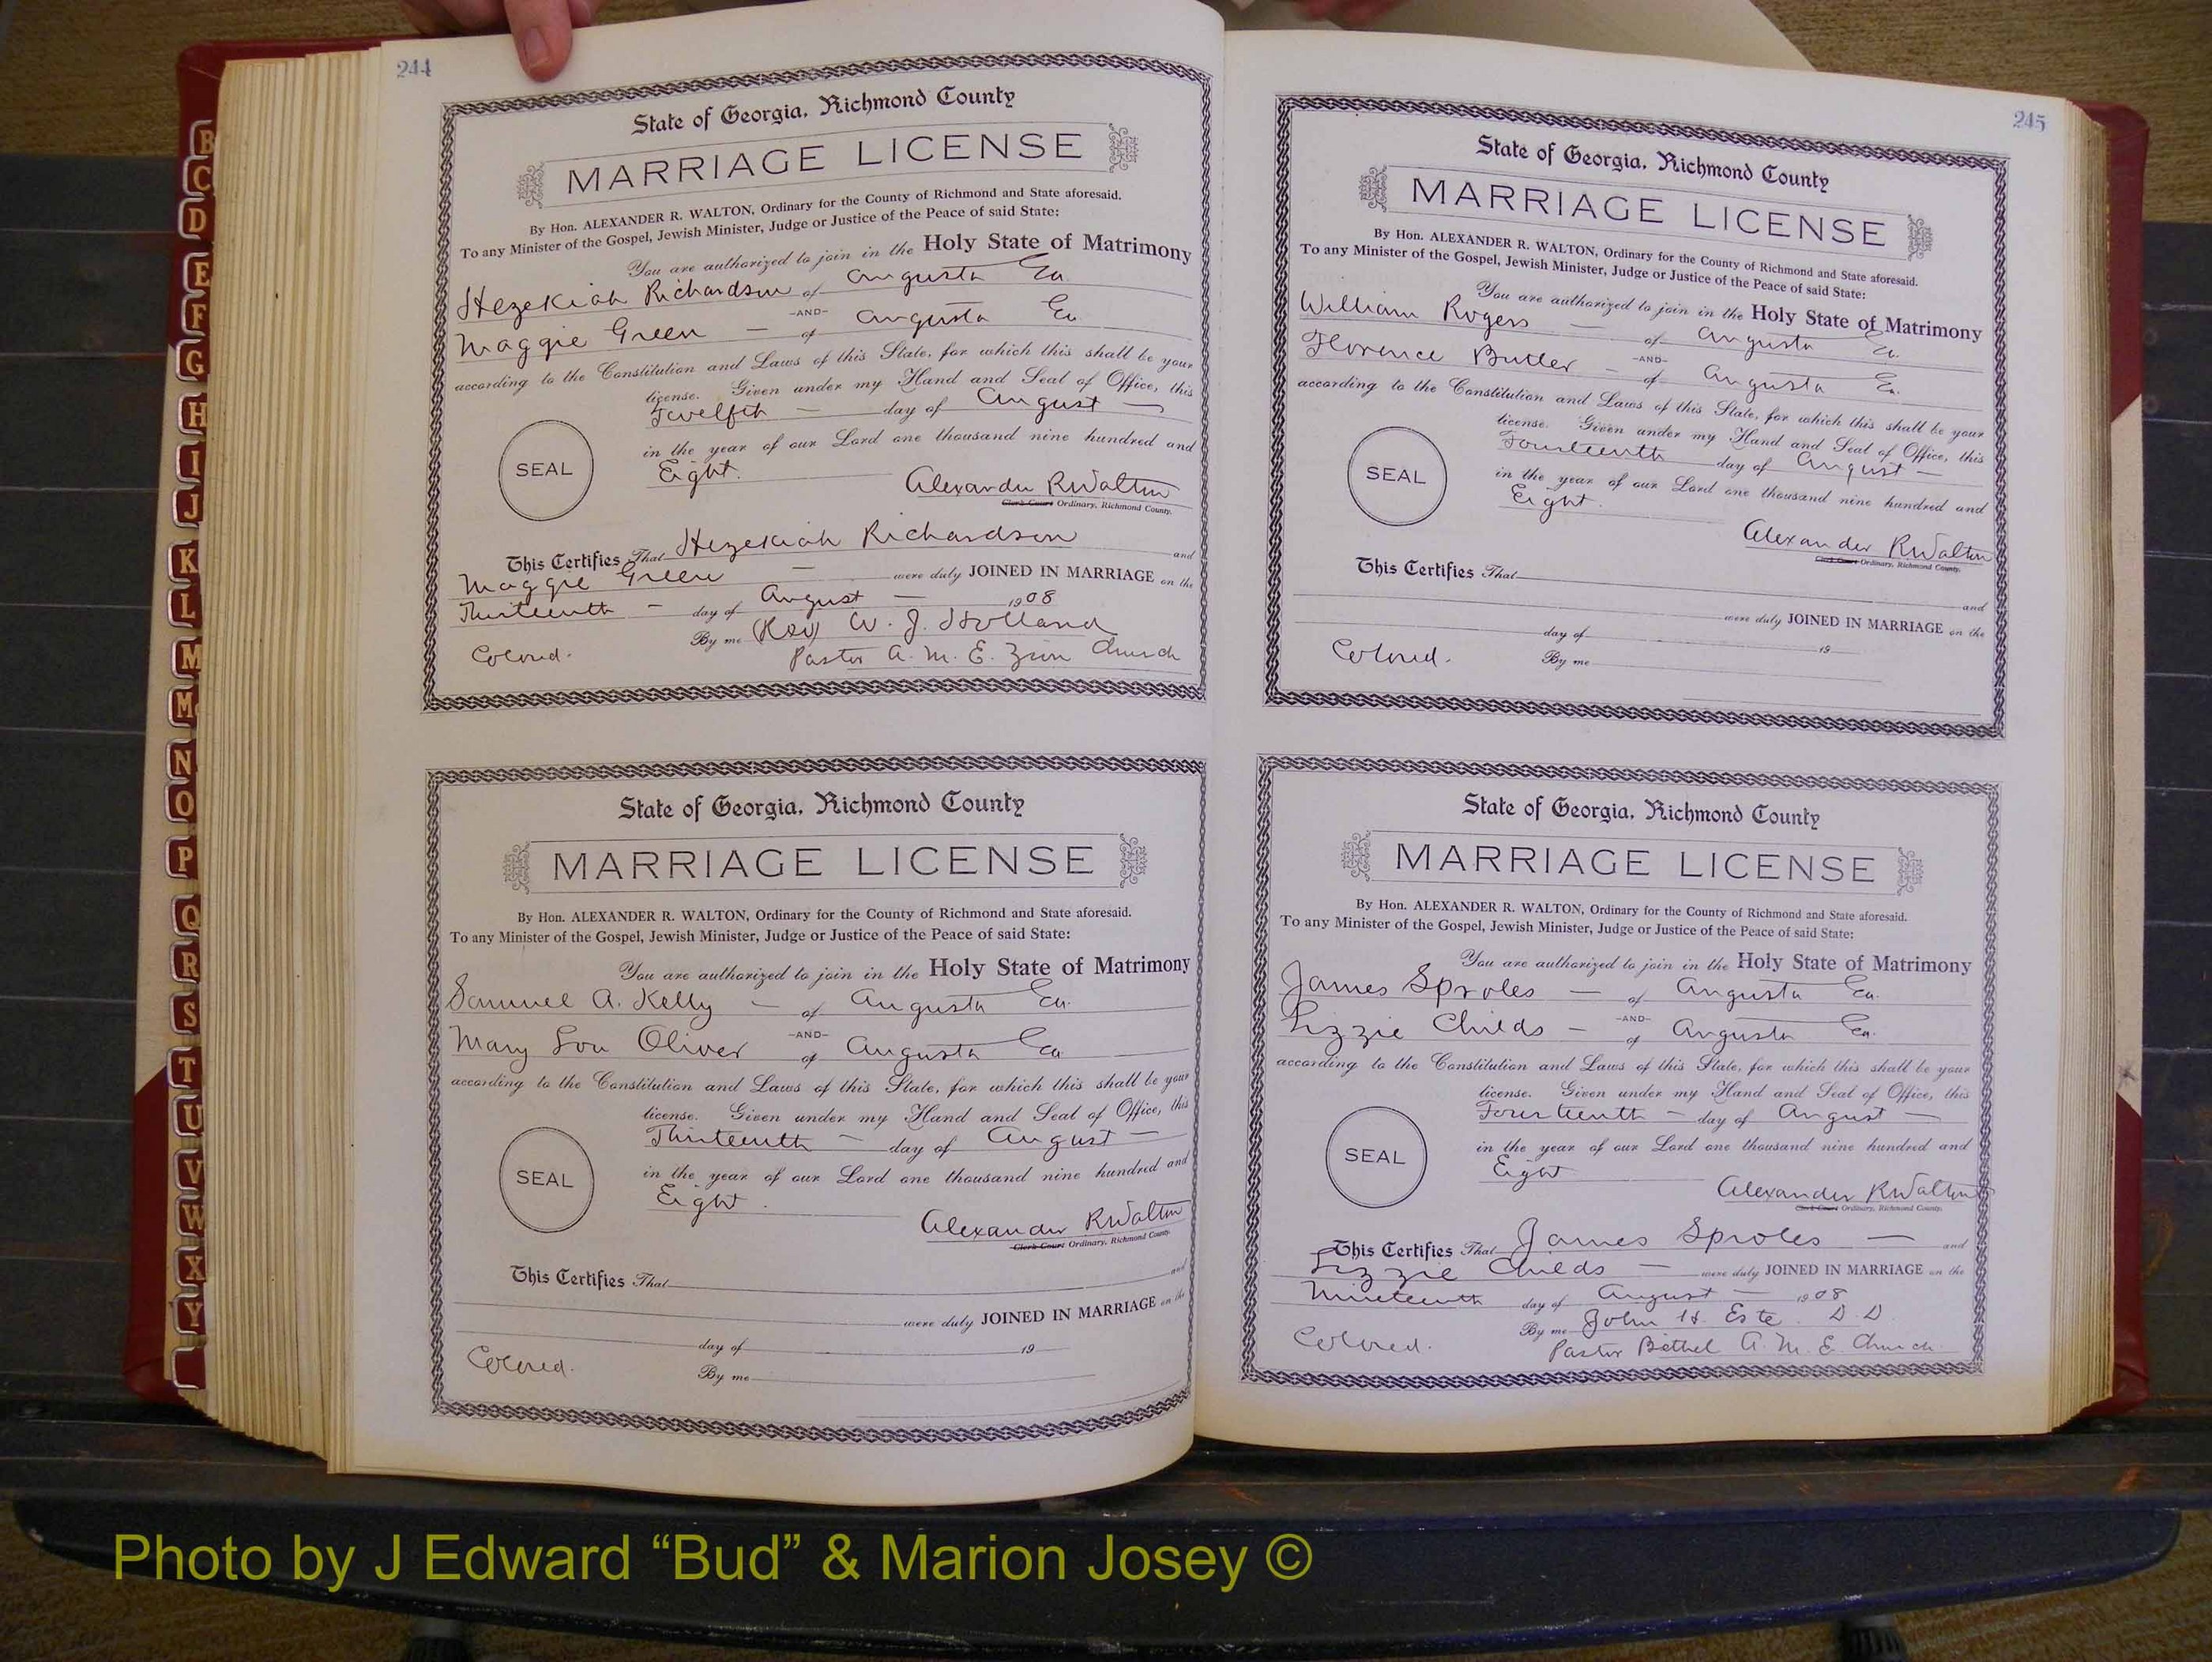 244
State of Georgia, Richmond County
MARRIAGE LICENSE
By Hon. ALEXANDER R. WALTON, Ordinary for the County of Richmond and State aforesaid.
To any Minister of the Gospel, Jewish Minister, Judge or Justice of the Peace of said State:
You are authorized to join in the Holy State of Matrimony
Hezekiah Richardson of Augusta Ga.
-AND-
Maggie Green — of Augusta Ga.
according to the Constitution and Laws of this State, for which this shall be your
license. Given under my Hand and Seal of Office, this
Twelfth — day of August —
in the year of our Lord one thousand nine hundred and
SEAL
Eight.
Alexander R Walton
Clerk Court Ordinary, Richmond County.
This Certifies That Hezekiah Richardson and
Maggie Green — were duly JOINED IN MARRIAGE on the
Thirteenth — day of August — 1908
By me (Rev) W. J. Holland
Colored. Pastor A. M. E. Zion Church
State of Georgia, Richmond County
MARRIAGE LICENSE
By Hon. ALEXANDER R. WALTON, Ordinary for the County of Richmond and State aforesaid.
To any Minister of the Gospel, Jewish Minister, Judge or Justice of the Peace of said State:
You are authorized to join in the Holy State of Matrimony
Samuel A. Kelly — of Augusta Ga.
-AND-
Mary Lou Oliver of Augusta Ga
according to the Constitution and Laws of this State, for which this shall be your
license. Given under my Hand and Seal of Office, this
Thirteenth — day of August —
in the year of our Lord one thousand nine hundred and
SEAL
Eight.
Alexander R Walton
Clerk Court Ordinary, Richmond County.
This Certifies That and
were duly JOINED IN MARRIAGE on the
day of 19
Colored.
By me
245
State of Georgia, Richmond County
MARRIAGE LICENSE
By Hon. ALEXANDER R. WALTON, Ordinary for the County of Richmond and State aforesaid.
To any Minister of the Gospel, Jewish Minister, Judge or Justice of the Peace of said State:
You are authorized to join in the Holy State of Matrimony
William Rogers — of Augusta Ga.
-AND-
Florence Butler — of Augusta Ga.
according to the Constitution and Laws of this State, for which this shall be your
license. Given under my Hand and Seal of Office, this
Fourteenth day of August —
in the year of our Lord one thousand nine hundred and
SEAL
Eight.
Alexander R Walton
Clerk Court Ordinary, Richmond County.
This Certifies That and
were duly JOINED IN MARRIAGE on the
day of 19
Colored. By me
State of Georgia, Richmond County
MARRIAGE LICENSE
By Hon. ALEXANDER R. WALTON, Ordinary for the County of Richmond and State aforesaid.
To any Minister of the Gospel, Jewish Minister, Judge or Justice of the Peace of said State:
You are authorized to join in the Holy State of Matrimony
James Sproles — of Augusta Ga.
-AND-
Lizzie Childs — of Augusta Ga.
according to the Constitution and Laws of this State, for which this shall be your
license. Given under my Hand and Seal of Office, this
Fourteenth — day of August —
in the year of our Lord one thousand nine hundred and
SEAL
Eight
Alexander R Walton
Clerk Court Ordinary, Richmond County.
This Certifies That James Sproles — and
Lizzie Childs — were duly JOINED IN MARRIAGE on the
Nineteenth day of August — 1908
By me John H. Este D.D
Colored. Pastor Bethel A. M. E. Church
B
C
D
E
F
G
H
I
J
K
L
M
Mc
N
O
P
Q
R
S
T
U
V
W
X
Y
Photo by J Edward “Bud” & Marion Josey ©